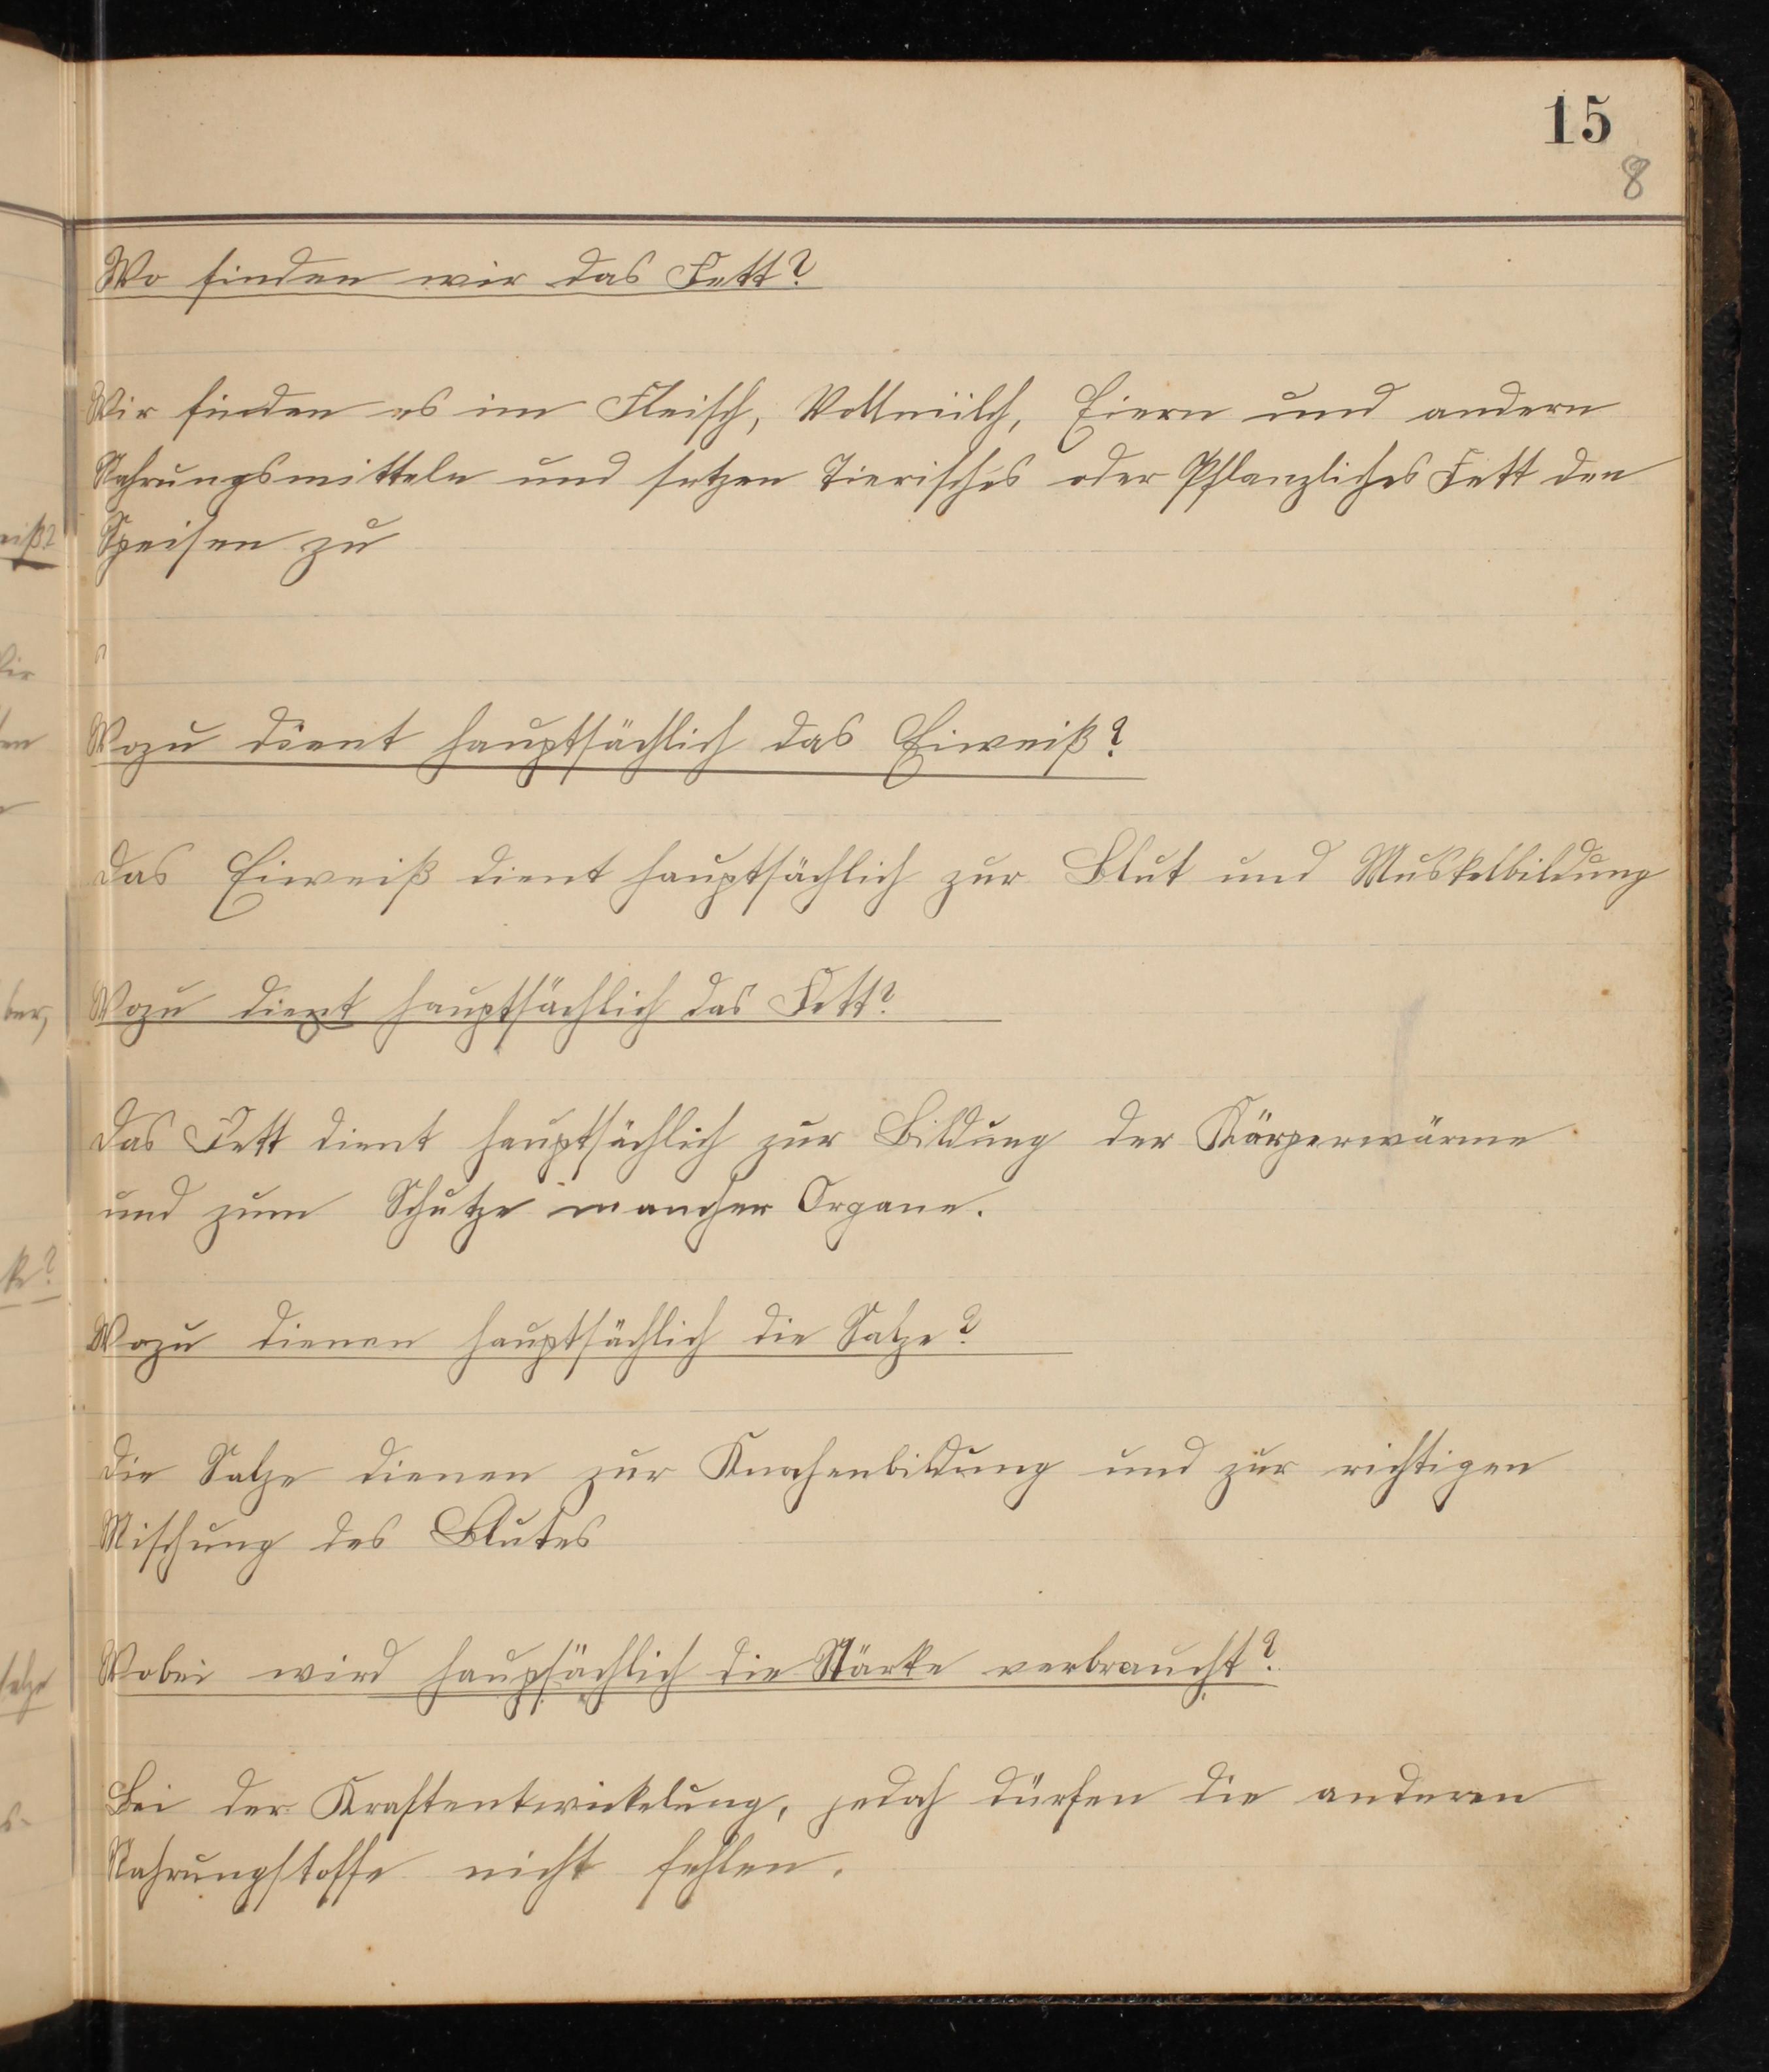 15
8
Wo finden wir das Fett?
Wir finden es im Fleisch, Vollmilch, Eiern und andern
Nahrungsmitteln und setzen Tierisches oder Pflanzliches Fett den
Speisen zu
Wozu dient hauptsächlich das Eiweiß?
Das Eiweiß dient hauptsächlich zur Blut und Muskelbildung
Wozu dient hauptsächlich das Fett?
Das Fett dient hauptsächlich zur Bildung der Körperwärme
und zum Schutze mancher Organe.
Wozu dienen hauptsächlich die Salze?
Die Salze dienen zur Knochenbildung und zur richtigen
Mischung des Blutes
Wobei wird haupsächlich die Stärke verbraucht?
Bei der Kraftentwickelung, jedoch dürfen die anderen
Nahrungstoffe nicht fehlen.